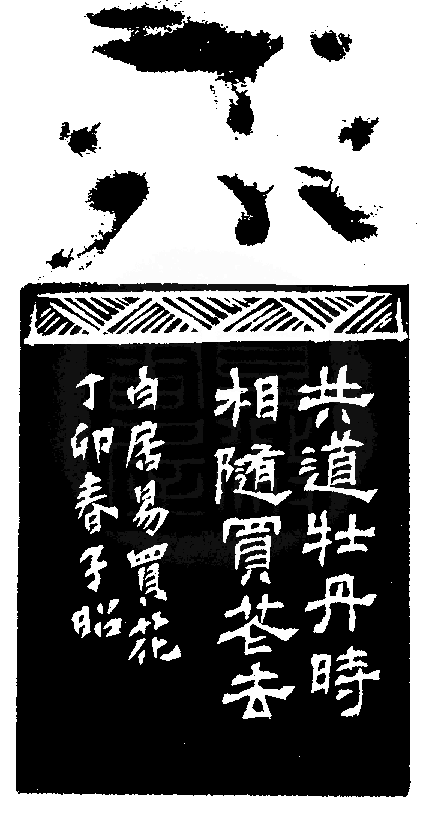 共道牡丹時
相隨買花去
白居易買花
丁卯春子昭